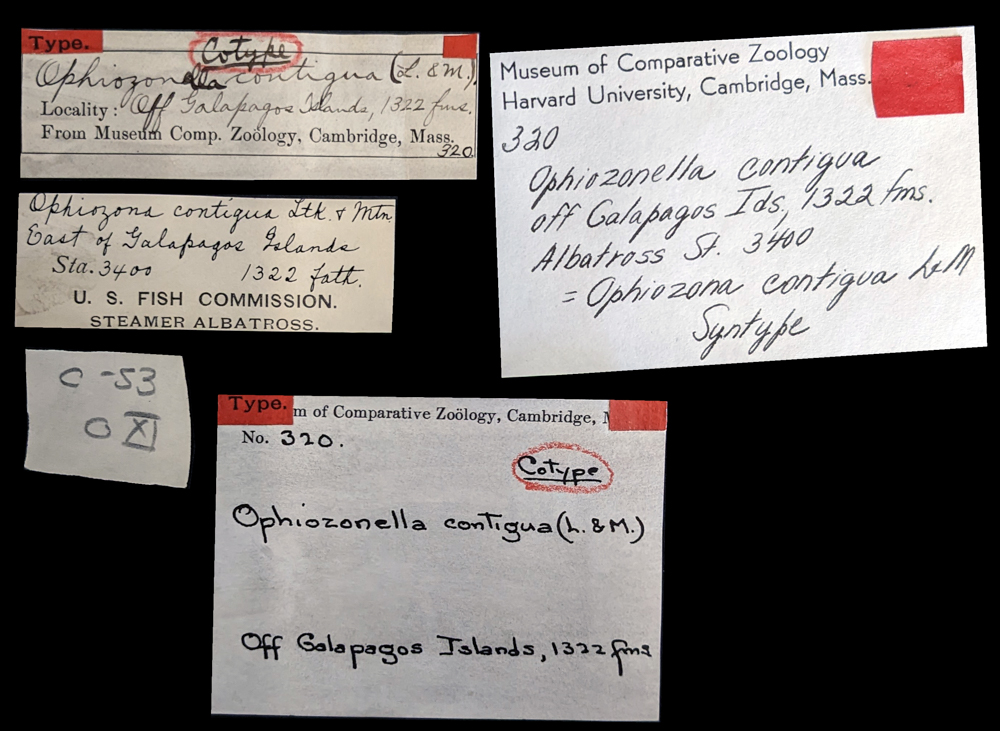 Type.
Cotype
Ophiozonella contigua (L. & M.)
Locality: Off Galapagos Islands, 1322 fms.
From Museum Comp. Zoölogy, Cambridge, Mass.
320
Ophiozona contigua Ltk. & Mtn
East of Galapagos Islands
Sta. 3400 1322 fath.
U. S. FISH COMMISSION.
STEAMER ALBATROSS.
C-53
O XI
Museum of Comparative Zoology
Harvard University, Cambridge, Mass.
320
Ophiozonella contigua
off Galapagos Ids, 1322 fms.
Albatross St. 3400
= Ophiozona contigua L & M
Syntype
Type. m of Comparative Zoölogy, Cambridge,
No. 320.
Cotype
Ophiozonella contigua (L. & M.)
Off Galapagos Islands, 1322 fms